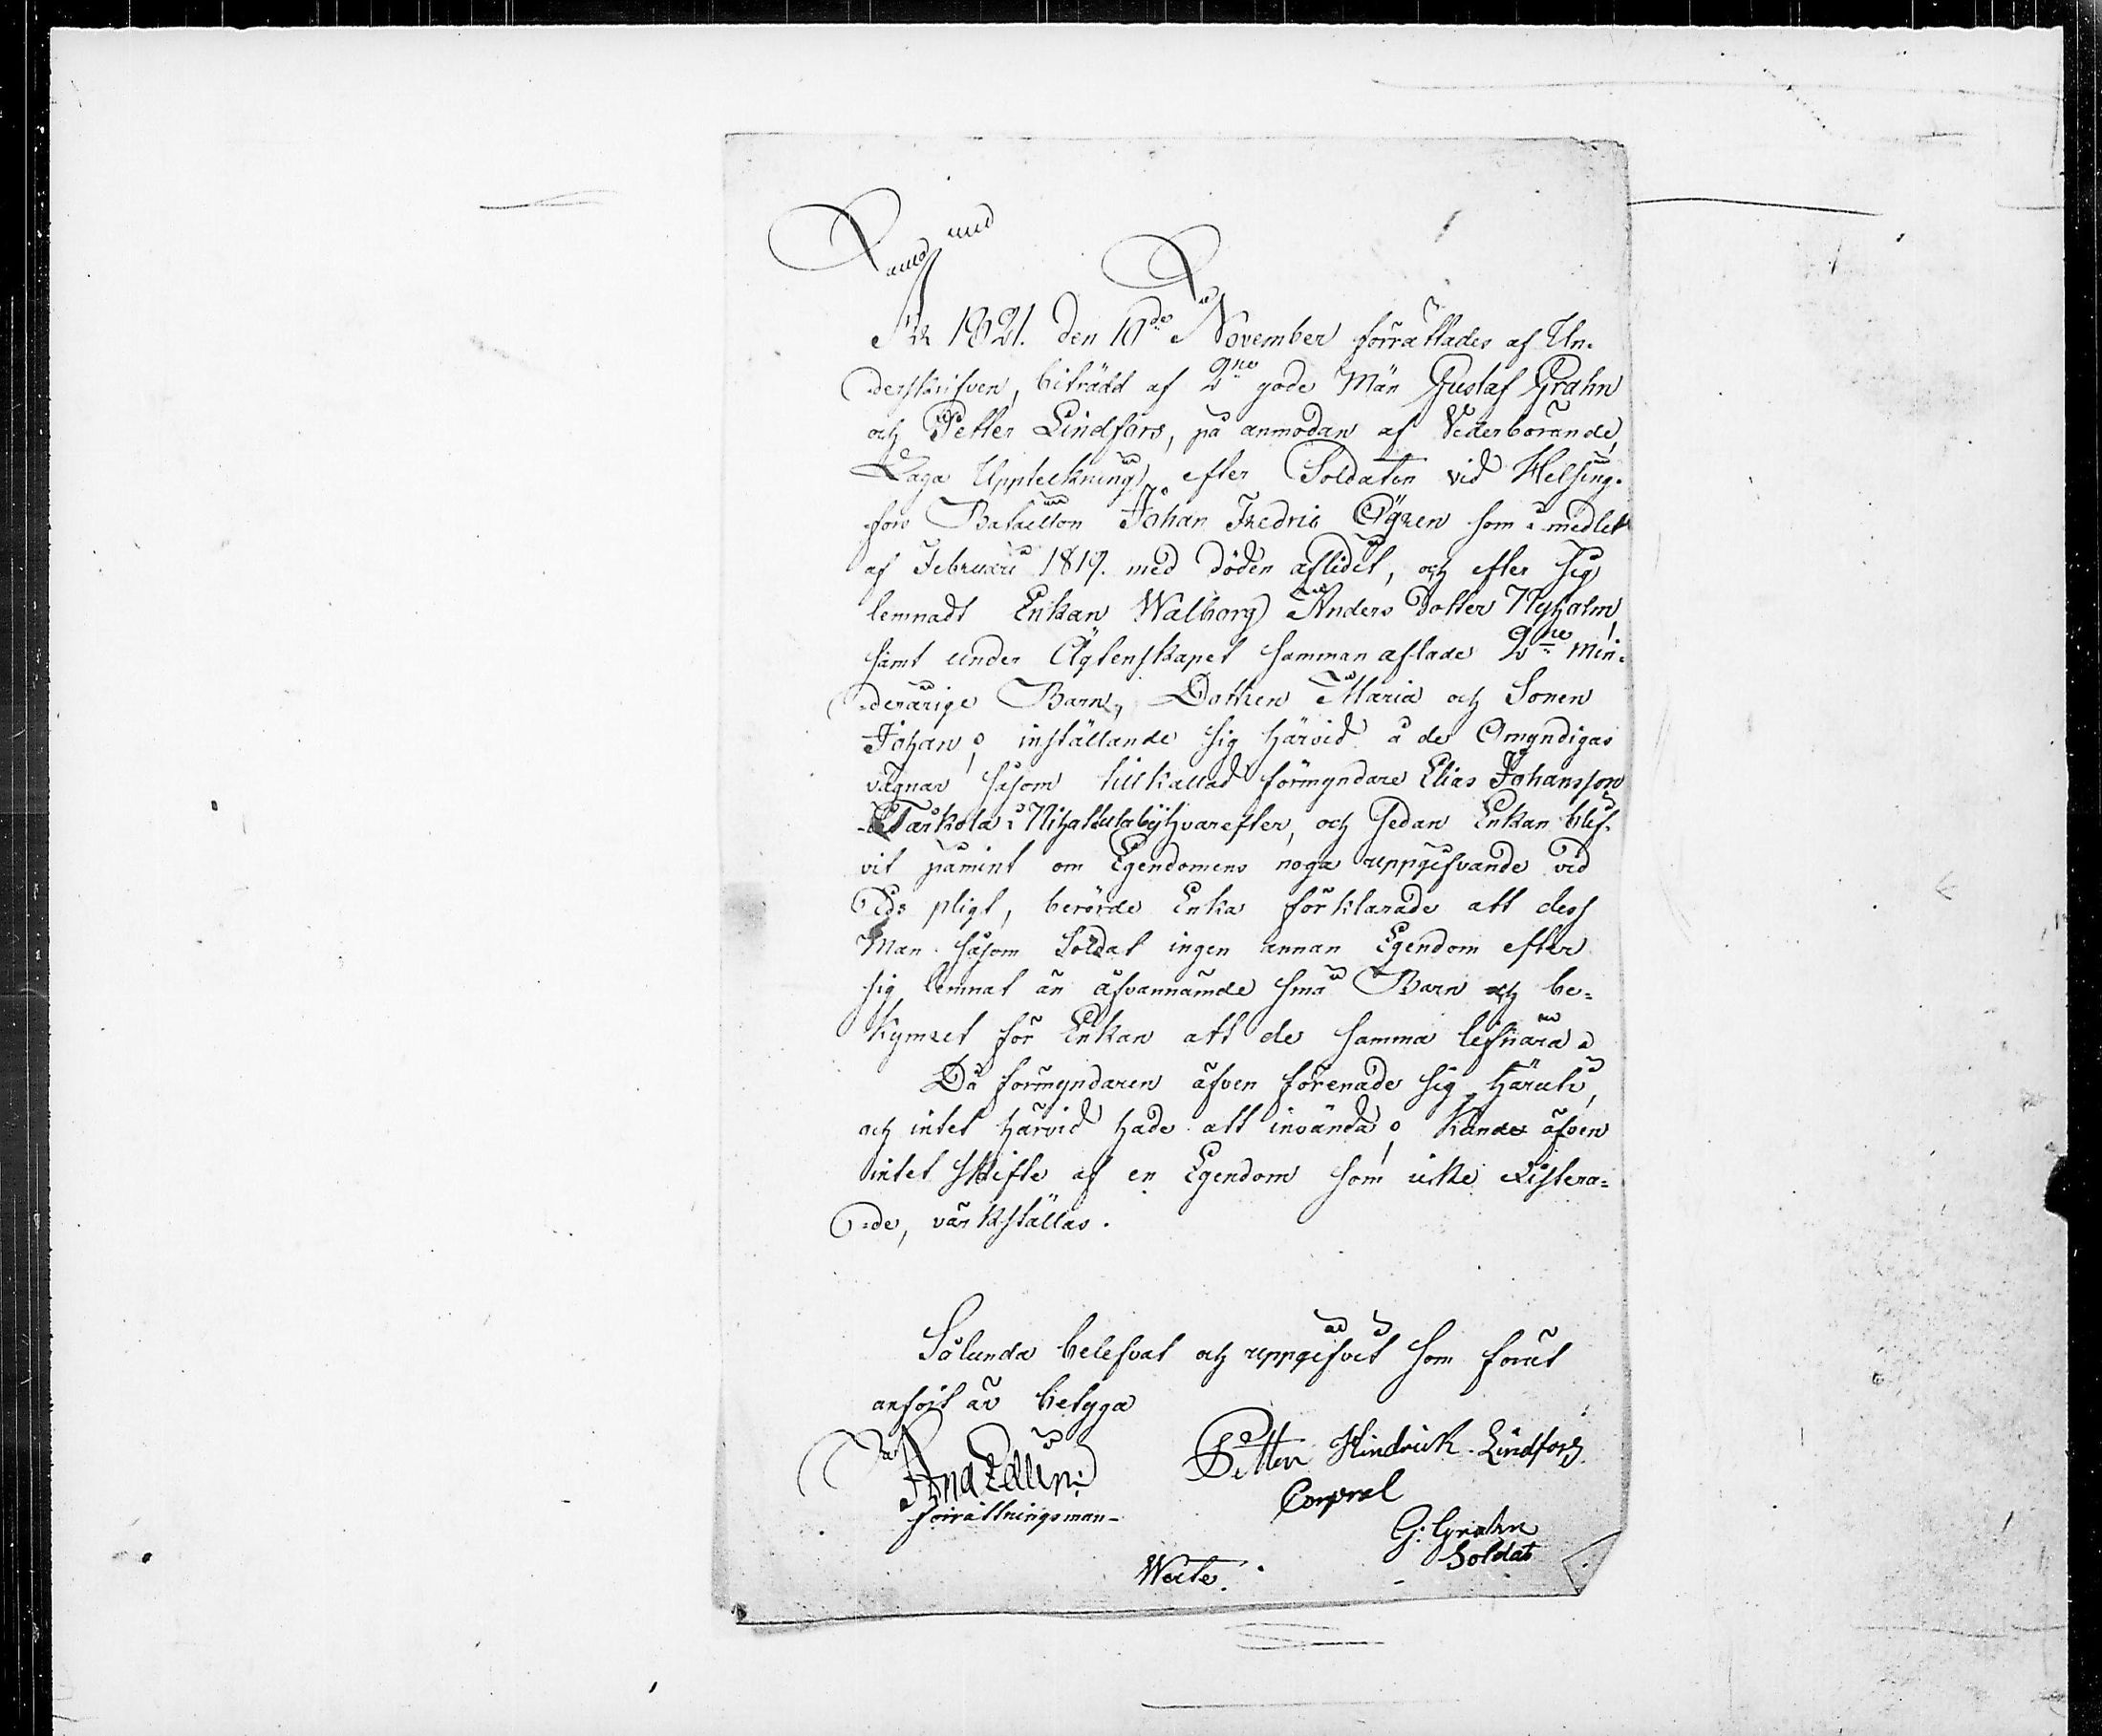 År 1821. den 10de November förrättades af Un-
derskrifven, biträdd af 2ne gode Män Gustaf Grahn
och Petter Lindfors, på anmodan af Vederbörande,
Laga Uppteckning efter Soldaten vid Helsing-
fors Bataillon Johan Fredric Ögren som i medlet
af Februari 1819. med döden aflidit, och efter sig
lemnadt Enkan Walborg Anders Dotter Nyholm,
samt under Ägtenskapet samman aflade 2ne Min-
derårige Barn, Dottren Maria och Sonen
Johan; inställande sig härvid å de Omyndigas
vägnar såsom tillkallad förmyndare Elias Johansson
Tarkola i Nihattula by hvarefter, och sedan Enkan blif-
vit påmint om Egendomens noga uppgifvande vid
Eds pligt, berörde Enka förklarade att dess
Man såsom Soldat ingen annan Egendom efter
sig lemnat än ofvannämde små Barn och be-
kymret för Enkan att de samma lifnära.
Då förmyndaren äfven förenade sig häruti,
och intet härvid hade att invända; kunde äfven
intet skifte af en Egendom som icke existera-
de, värkställas.
Sålunda belefvat och uppgifvit som förut
anfört är betyga
förrättningsman
Petter Hindrick Lindfors
Corpral
G: Grahn
Soldat
Werte.